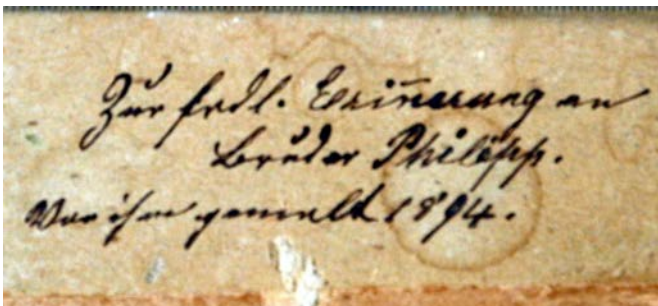 Zur frdl. Erin̄erung an
Bruder Philipp.
Von ihm gemalt 1894.